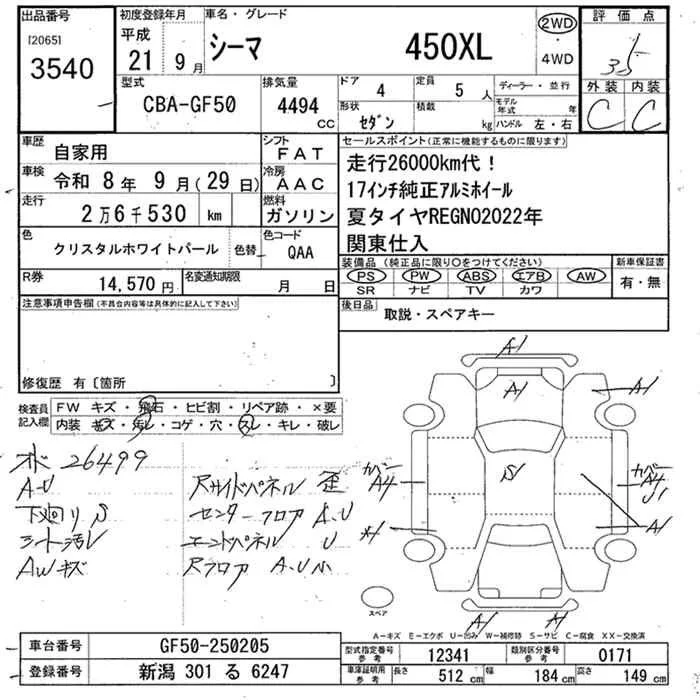 出品番号 初度登録年月 車名・グレード 評価点
[2065] 平成 シーマ 450XL 2WD
3540 21 9月 4WD 3.5
型式 排気量 ドア 4 定員 5人 ディーラー・並行 外装 内装
CBA-GF50 4494 CC 形状 セダン 積載 kg モデル年式 年 ハンドル 左・右 C C
車歴 自家用 シフト FAT セールスポイント(正常に機能するものに限ります)
車検 令和 8年 9月(29日) 冷房 AAC 走行26000km代!
走行 2万6千530 km 燃料 ガソリン 17インチ純正アルミホイール
夏タイヤREGNO2022年
色 クリスタルホワイトパール 色替 色コード QAA 関東仕入
R券 14,570円 名変通知期限 月 日 装備品(純正品に限り○をつけてください) 新車保証書
PS PW ABS エアB AW 有・無
SR ナビ TV カワ
注意事項申告欄(不具合内容等は具体的に記入して下さい) 後日品 取説・スペアキー
修復歴 有〔箇所 〕
検査員記入欄 FW キズ・飛石・ヒビ割・リペア跡・×要
内装 キズ・汚レ・コゲ・穴・スレ・キレ・破レ
A1
A1 A1
26499
A・U Rサイドパネル 歪
下廻り S センターフロア A、U
シート汚レ エンドパネル U
AWキズ Rフロア A、U小
S
カバー A4 カバー A4 U1
A1
A1 A1
スペア
A-キズ E-エクボ U-凹み W-補修跡 S-サビ C-腐食 XX-交換済
車台番号 GF50-250205 型式指定番号 参考 12341 類別区分番号 参考 0171
登録番号 新潟 301 る 6247 車庫証明用 参考 長さ 512 cm 幅 184 cm 高さ 149 cm